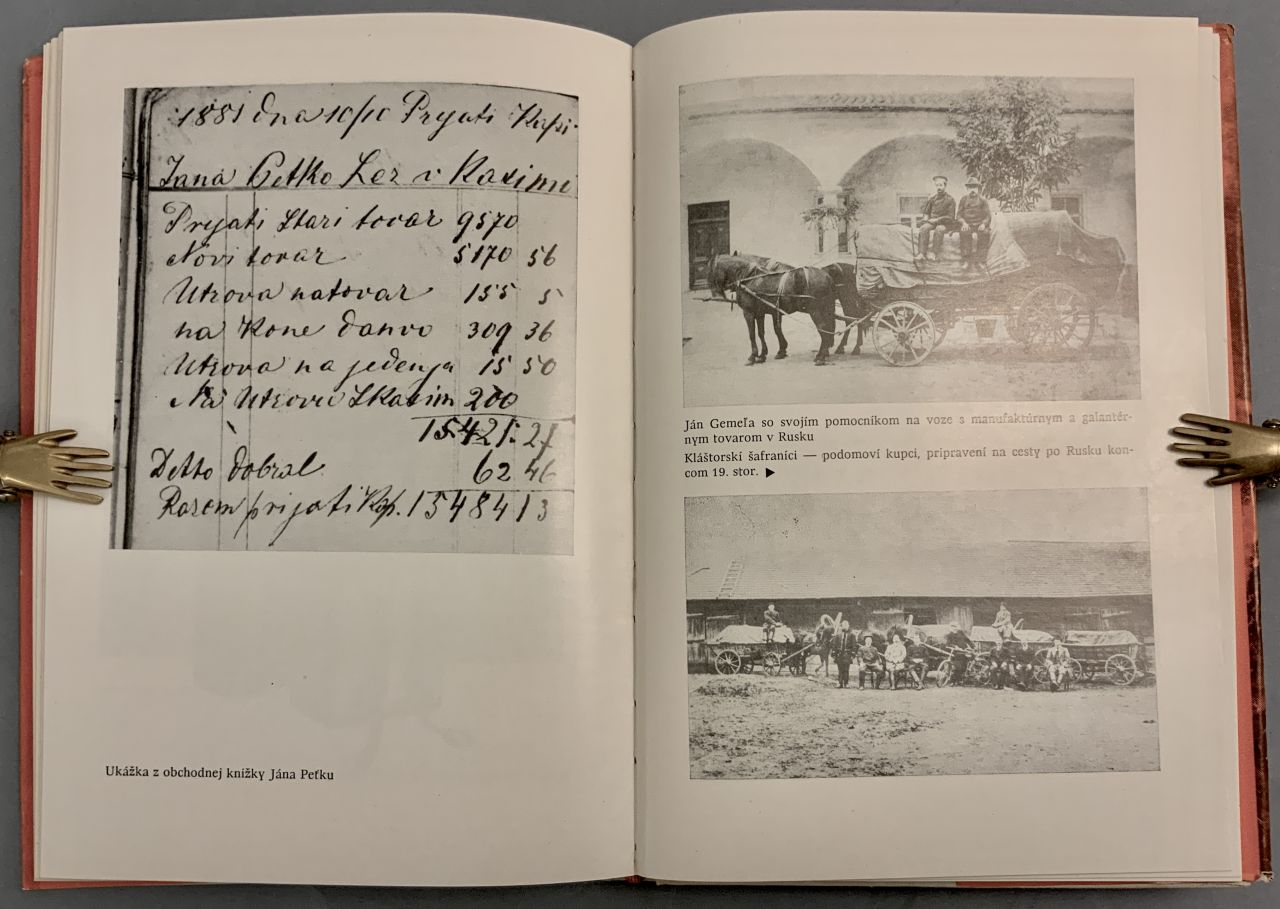 1881 dna 10/10 Pryati Kapi-
Jana Petko Lez v Kasimu
Pryati Stari tovar 9570
Novi tovar 5170 56
Utrova natovar 155 5
na Kone danvo 309 36
Utrova na jedenja 15 50
Na Utrovu SKasim 200
15421.27
Detto dobral 62 46
Razem prijati Kap. 15484 13
Ukážka z obchodnej knižky Jána Peťku
Ján Gemeľa so svojím pomocníkom na voze s manufaktúrnym a galantér-
nym tovarom v Rusku
Kláštorskí šafraníci — podomoví kupci, pripravení na cesty po Rusku kon-
com 19. stor. ▶